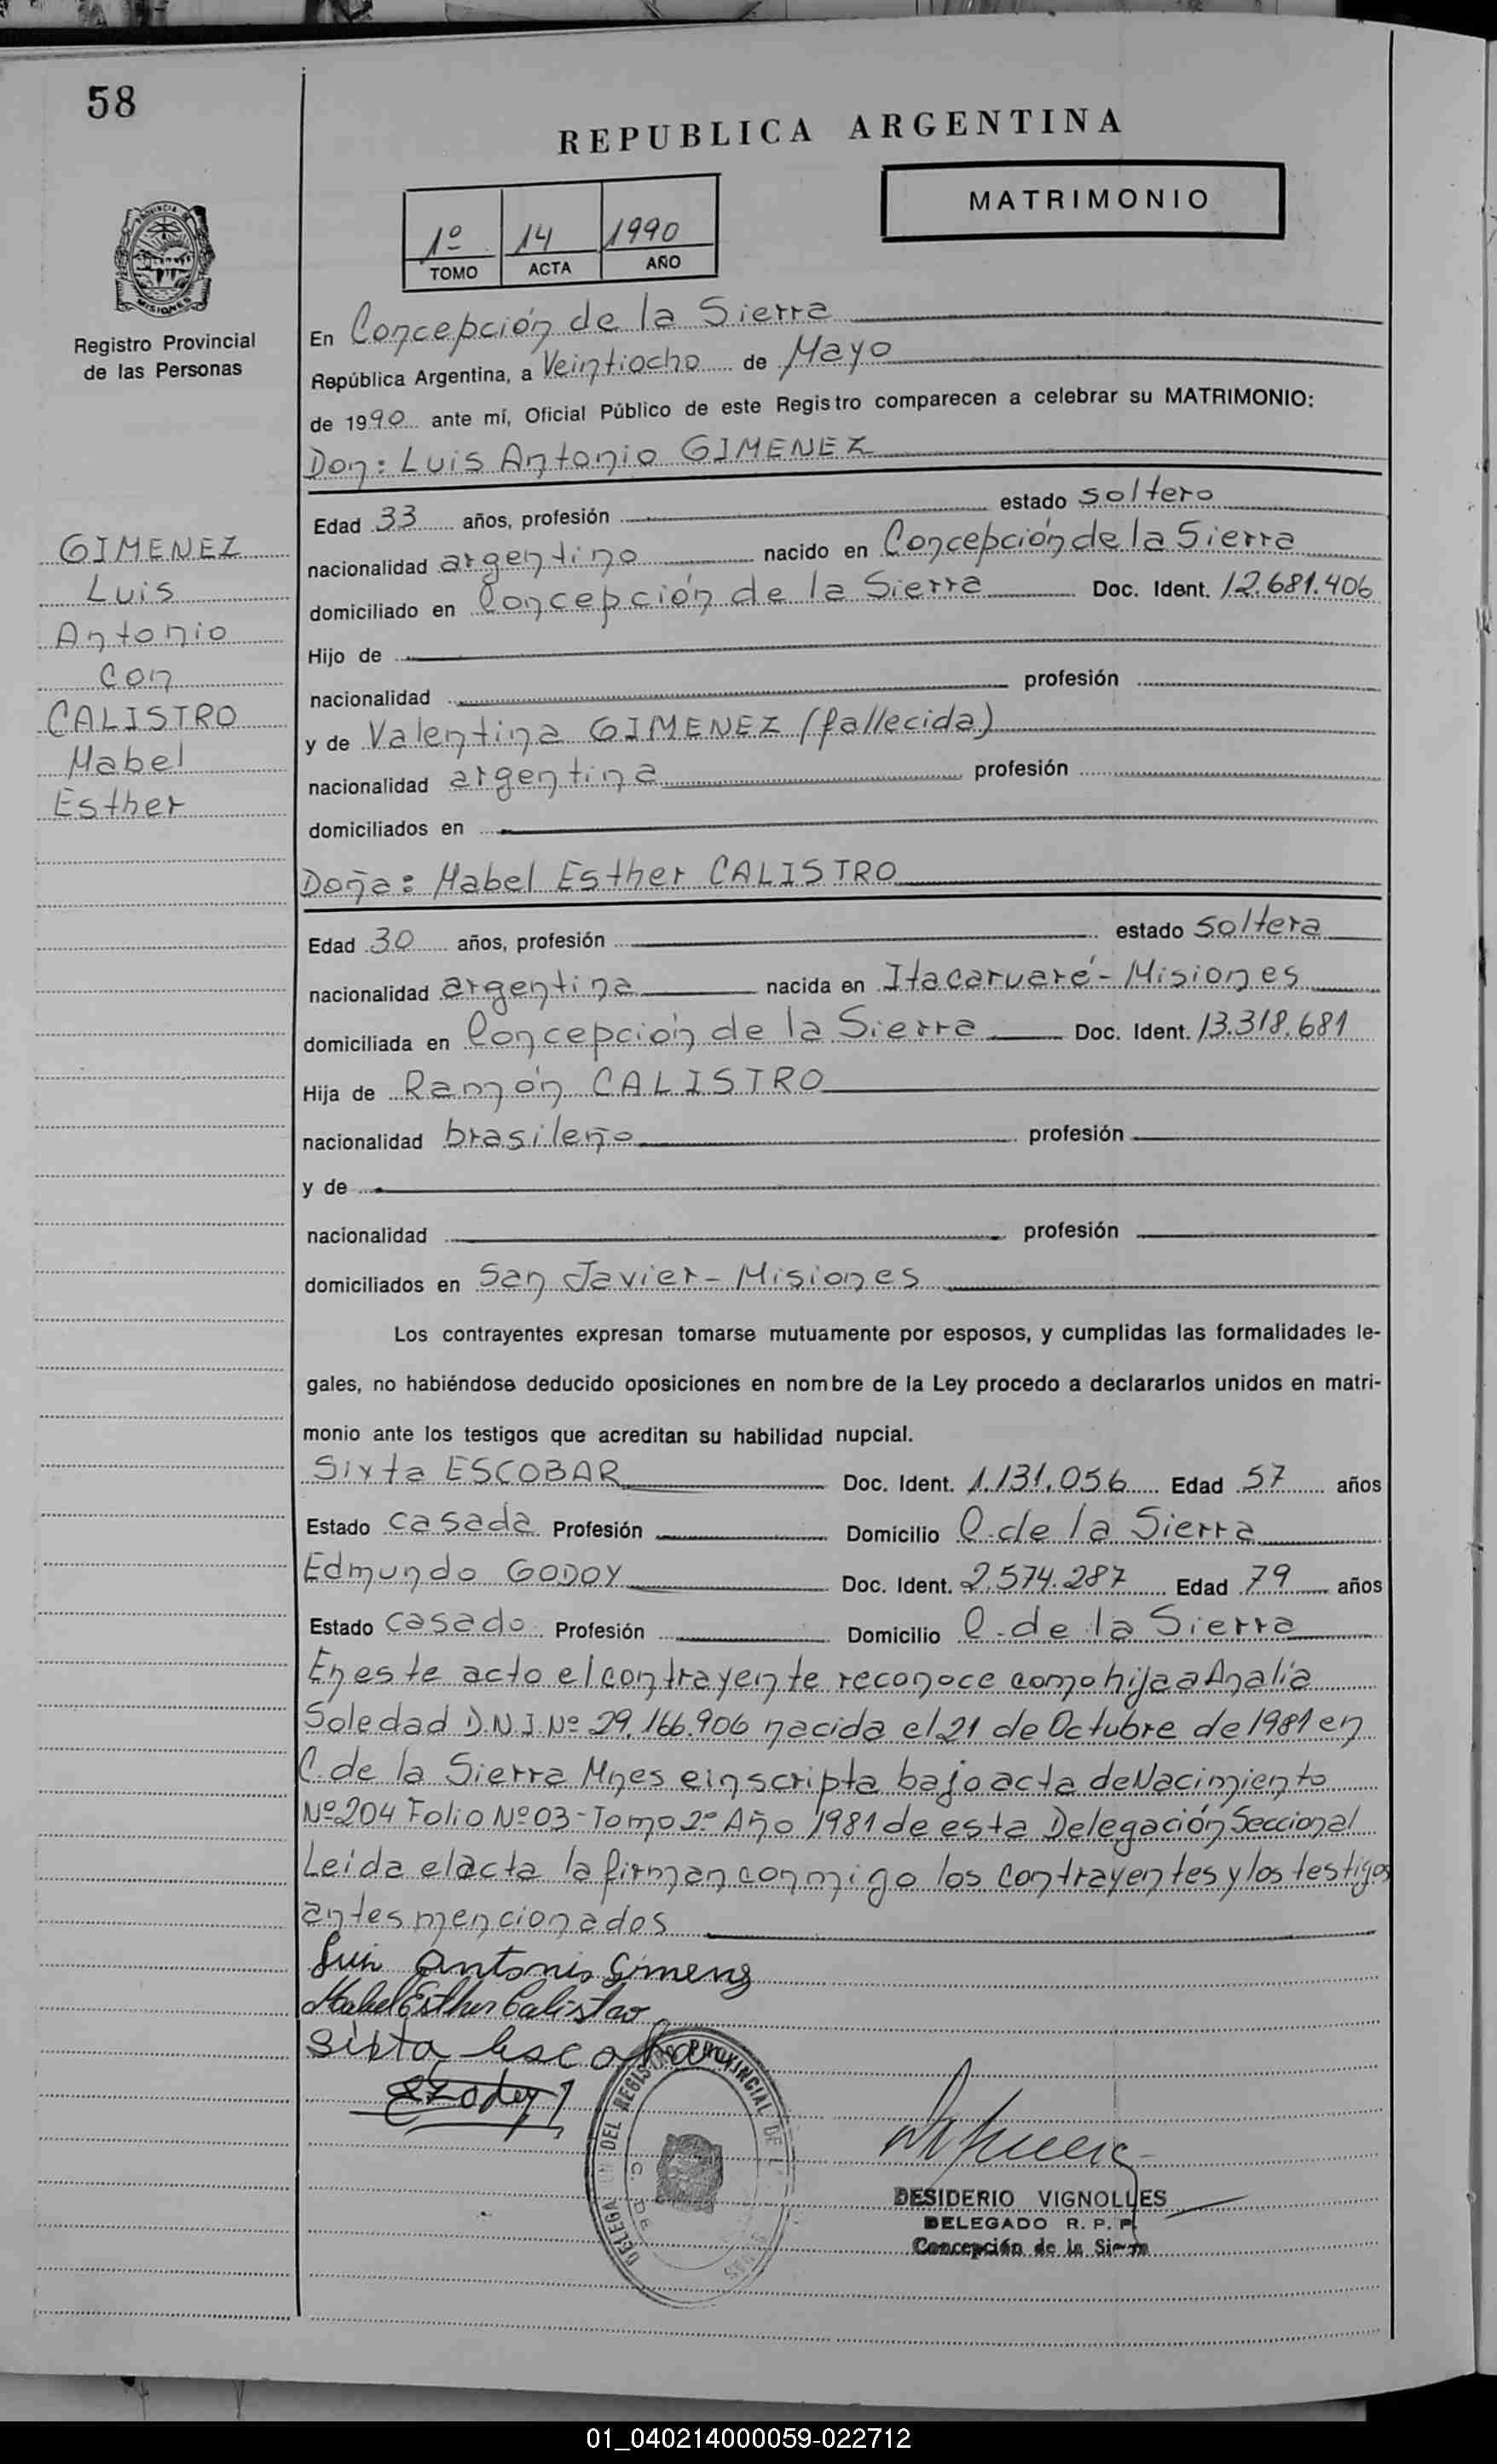 58
REPUBLICA ARGENTINA
MATRIMONIO
1º 14 1990
TOMO ACTA AÑO
PROVINCIA DE
MISIONES
Registro Provincial
de las Personas
En Concepción de la Sierra
República Argentina, a Veintiocho de Mayo
de 1990 ante mí, Oficial Público de este Registro comparecen a celebrar su MATRIMONIO:
Don: Luis Antonio GIMENEZ
Edad 33 años, profesión estado soltero
nacionalidad argentino nacido en Concepción de la Sierra
domiciliado en Concepción de la Sierra Doc. Ident. 12.681.406
Hijo de
nacionalidad profesión
y de Valentina GIMENEZ (fallecida)
nacionalidad argentina profesión
domiciliados en
GIMENEZ
Luis
Antonio
con
CALISTRO
Mabel
Esther
Doña: Mabel Esther CALISTRO
Edad 30 años, profesión estado soltera
nacionalidad argentina nacida en Itacaruaré - Misiones
domiciliada en Concepción de la Sierra Doc. Ident. 13.318.681
Hija de Ramón CALISTRO
nacionalidad brasileño profesión
y de
nacionalidad profesión
domiciliados en San Javier - Misiones
Los contrayentes expresan tomarse mutuamente por esposos, y cumplidas las formalidades le-
gales, no habiéndose deducido oposiciones en nombre de la Ley procedo a declararlos unidos en matri-
monio ante los testigos que acreditan su habilidad nupcial.
Sixta ESCOBAR Doc. Ident. 1.131.056 Edad 57 años
Estado casada Profesión Domicilio C. de la Sierra
Edmundo GODOY Doc. Ident. 2.574.287 Edad 79 años
Estado casado Profesión Domicilio C. de la Sierra
En este acto el contrayente reconoce como hija a Analía
Soledad D.N.I. Nº 29.166.906 nacida el 21 de Octubre de 1981 en
C. de la Sierra Mnes e inscripta bajo acta de Nacimiento
Nº 204 Folio Nº 03 - Tomo 2º Año 1981 de esta Delegación Seccional
Leida el acta la firman conmigo los contrayentes y los testigos
antes mencionados
Luis Antonio Gimenz
Mabel Esther Calistro
Sixta Escobar
DEL REGISTRO PROVINCIAL DE
C. DE
DESIDERIO VIGNOLLES
DELEGADO R. P. P.
Concepción de la Sierra
01_040214000059-022712